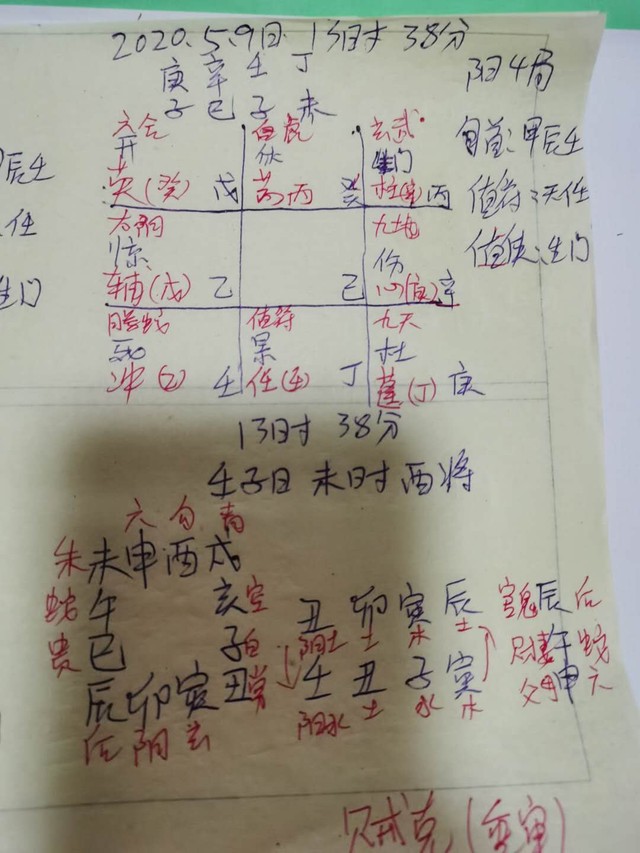 2020.5.9日 13时 38分
庚 辛 壬 丁
子 巳 子 未
阳4局
旬首:甲辰壬
值符:天任
值使:生门
辰壬
任
生门
六合 白虎 玄武
开 休 生门
英(癸) 戊 芮丙 癸 柱 丙
太阴 九地
惊 伤
辅(戊) 乙 己 心(庚) 辛
螣蛇 值符 九天
死 景 杜
冲(乙) 壬 任(壬) 丁 蓬(丁) 庚
13时 38分
壬子日 未时 酉将
六 勾 青
朱 未 申 酉 戌
蛇 午 亥 空
贵 巳 子 白
辰 卯 寅 丑 常
后 阴 玄
丑 卯 寅 辰
阳土 土 木 土
壬 丑 子 寅
阳水 土 水 木
官鬼 辰 后
财妻 午 蛇
父母 申 六
贼克(重审)